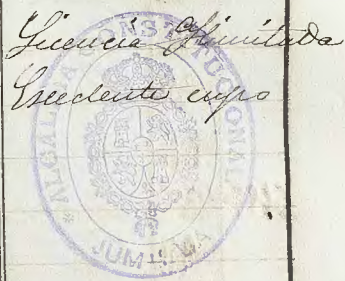 Licencia Ilimitada
Escedente cupo
ALCALDIA CONSTITUCIONAL
JUMILLA